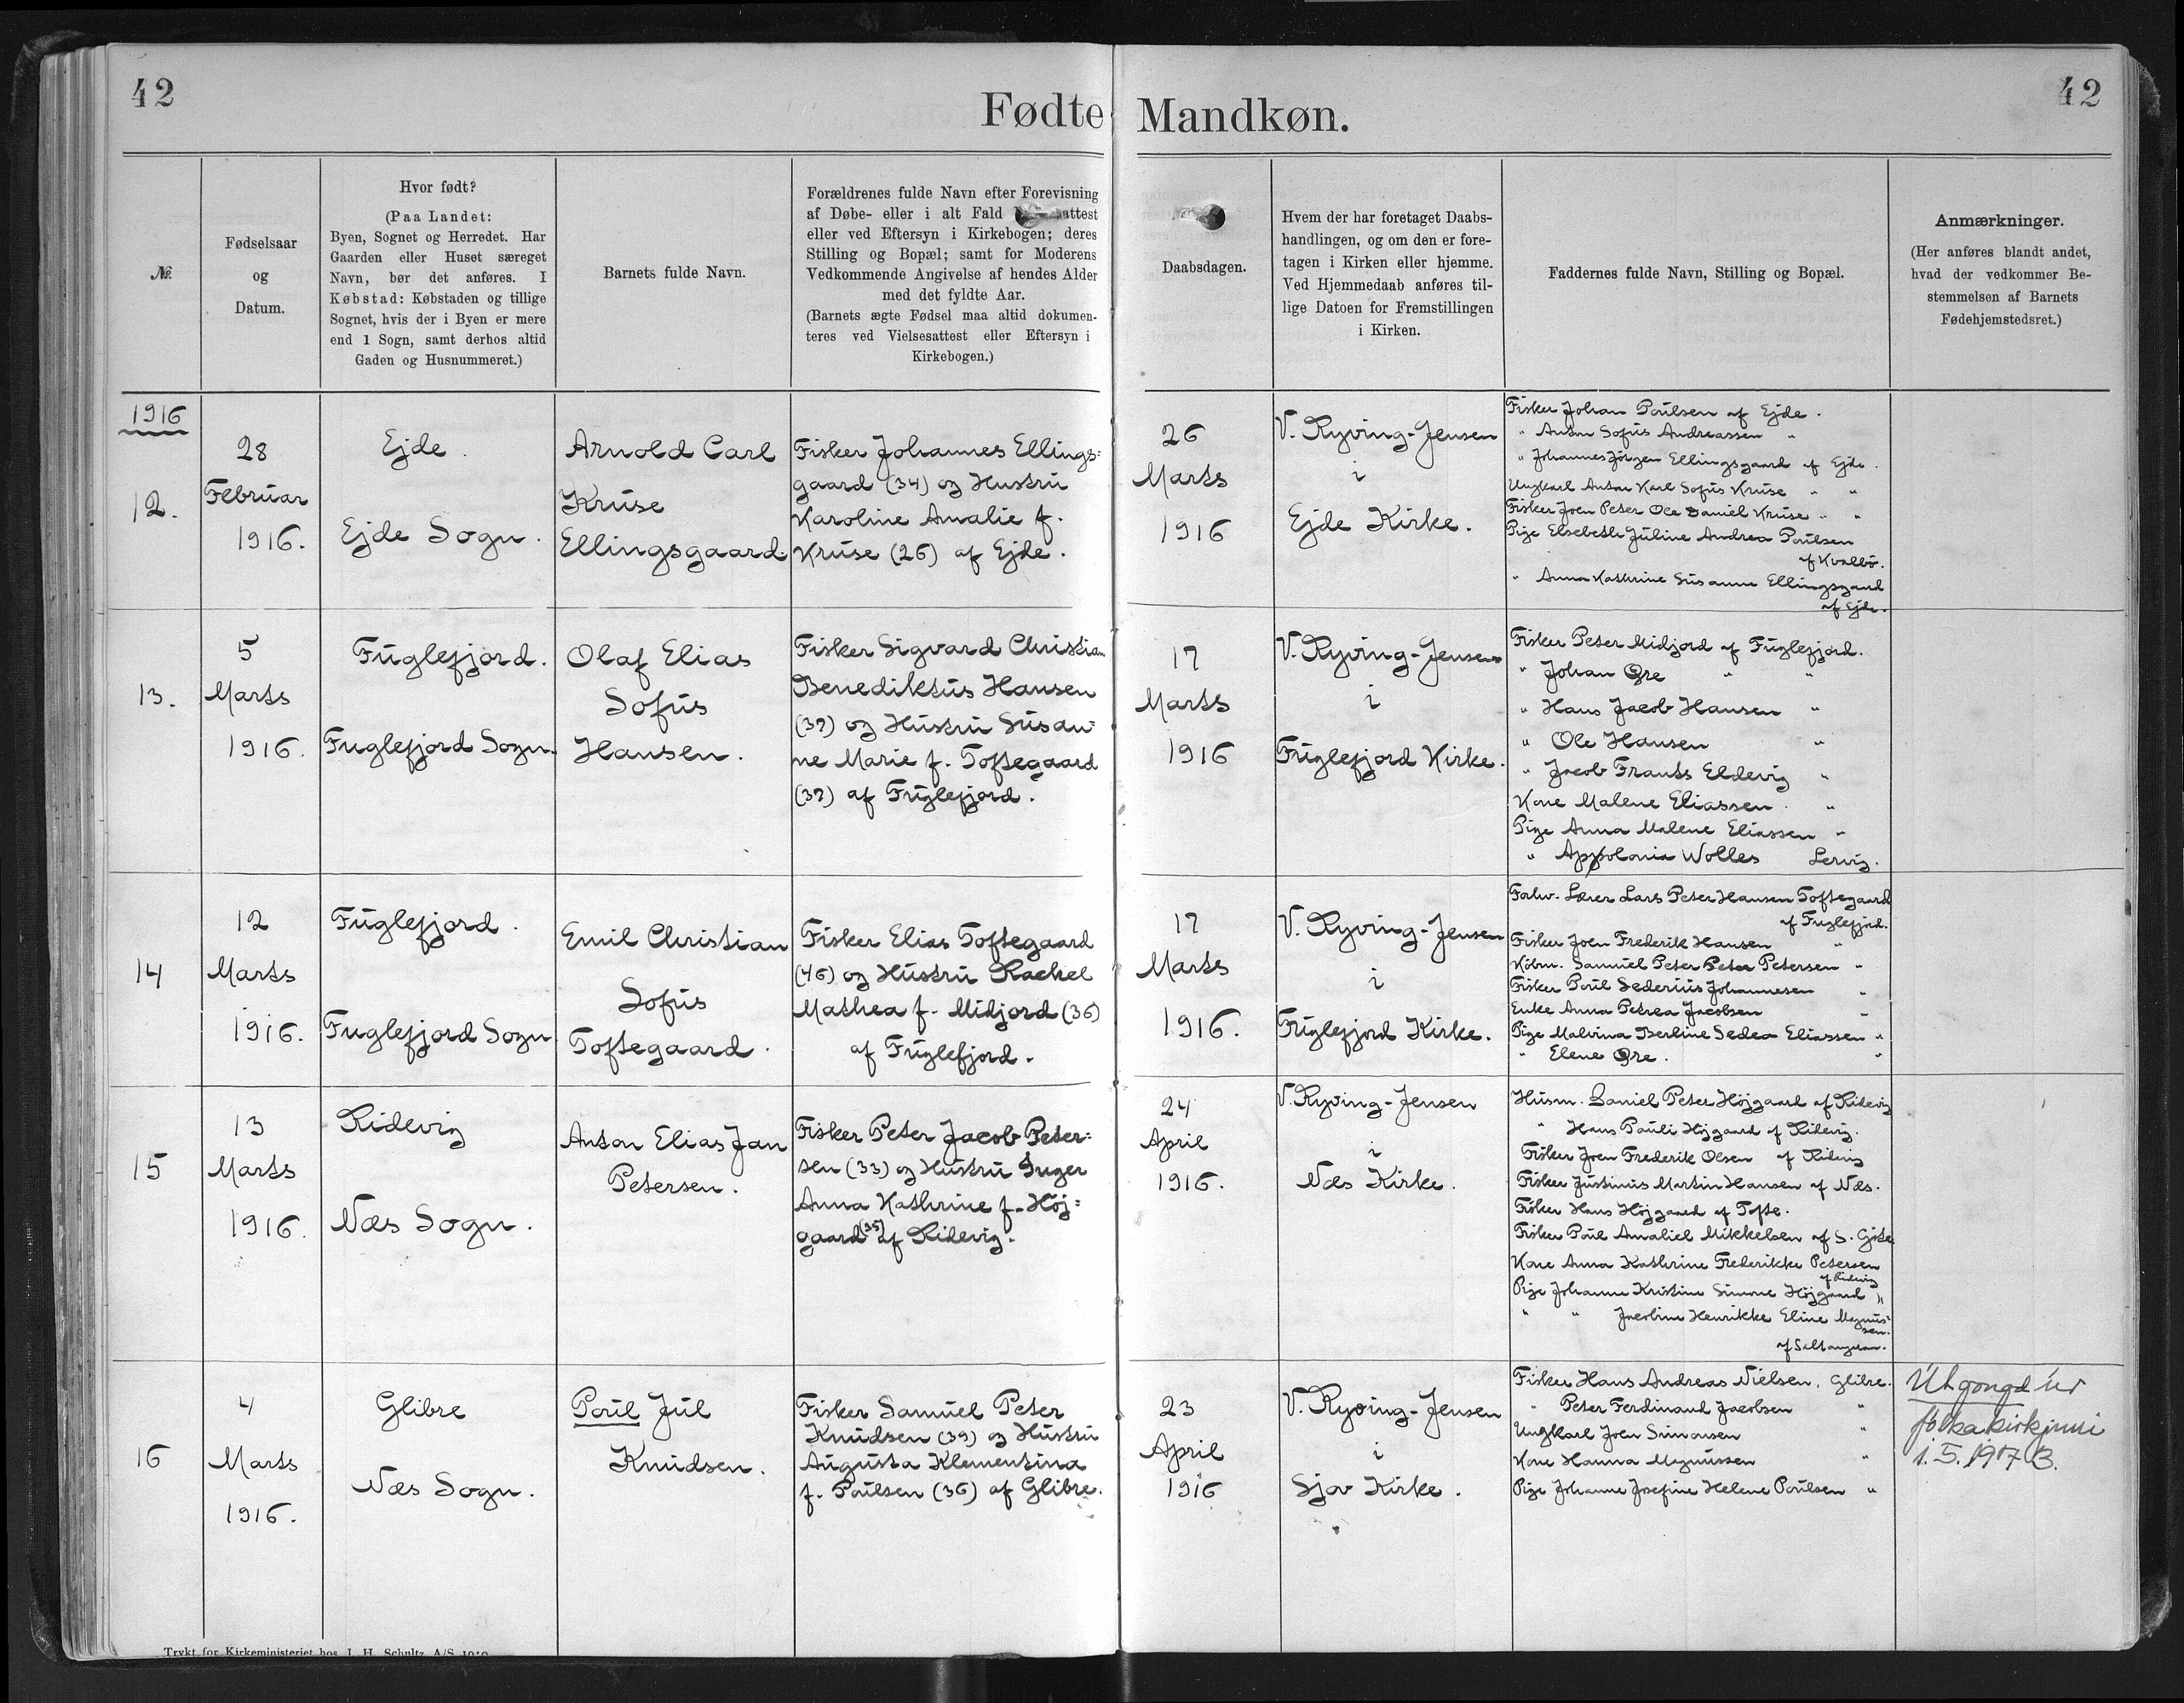 42
Fødte
Mandkøn.
42
№
Fødselsaar
og
Datum.
Hvor født?
(Paa Landet:
Byen, Sognet og Herredet. Har
Gaarden eller Huset særeget
Navn, bør det anføres. I
Købstad: Købstaden og tillige
Sognet, hvis der i Byen er mere
end 1 Sogn, samt derhos altid
Gaden og Husnummeret.)
Barnets fulde Navn.
Forældrenes fulde Navn efter Forevisning
af Døbe- eller i alt Fald
eller ved Eftersyn i Kirkebogen; deres
Stilling og Bopæl; samt for Moderens
Vedkommende Angivelse af hendes Alder
med det fyldte Aar.
(Barnets ægte Fødsel maa altid dokumen-
teres ved Vielsesattest eller Eftersyn i
Kirkebogen.)
Daabsdagen.
Hvem der har foretaget Daabs-
handlingen, og om den er fore-
tagen i Kirken eller hjemme.
Ved Hjemmedaab anføres til-
lige Datoen for Fremstillingen
i Kirken.
Faddernes fulde Navn, Stilling og Bopæl.
Anmærkninger.
(Her anføres blandt andet,
hvad der vedkommer Be-
stemmelsen af Barnets
Fødehjemstedsret.)
1916
12.
28
Februar
1916.
Ejde.
Ejde Sogn.
Arnold Carl
Kruse
Ellingsgaard.
Fisker Johannes Ellings=
gaard (34) og Hustru
Karoline Amalie f.
Kruse (26) af Ejde.
26
Marts
1916
V. Ryving-Jensen
i
Ejde Kirke.
Fisker Johan Poulsen af Ejde.
" Anton Sofus Andreassen "
" Johannes Jörgen Ellingsgaard af Ejde.
Ungkarl Anton Karl Sofus Kruse " "
Fisker Joen Peter Ole Daniel Kruse " "
Pige Elsebeth Juline Andrea Poulsen
af Kvalbö.
" Anna Kathrine Susanne Ellingsgaard
af Ejde.
13.
5
Marts
1916.
Fuglefjord.
Fuglefjord Sogn.
Olaf Elias
Sofus
Hansen.
Fisker Sigvard Christian
Benediktus Hansen
(37) og Hustru Susan=
ne Marie f. Toftegaard
(37) af Fuglefjord.
17
Marts
1916
V. Ryving-Jensen
i
Fuglefjord Kirke.
Fisker Peter Midjord af Fuglefjord.
" Johan Øre " "
" Hans Jacob Hansen "
" Ole Hansen "
" Jacob Frants Eldevig "
Kone Malene Eliassen. "
Pige Anna Malene Eliassen "
" Appolonia Wolles Lervig.
14
12
Marts
1916.
Fuglefjord.
Fuglefjord Sogn
Emil Christian
Sofus
Toftegaard.
Fisker Elias Toftegaard
(46) og Hustru Rachel
Mathea f. Midjord (36)
af Fuglefjord.
17
Marts
1916.
V. Ryving-Jensen
i
Fuglefjord Kirke.
Forhv. Lærer Lars Peter Hansen Toftegaard
af Fuglefjord.
Fisker Joen Frederik Hansen "
Köbm. Samuel Peter Peter Petersen "
Fisker Poul Sederius Johannesen "
Enke Anna Petrea Jacobsen "
Pige Malvina Berline Sedea Eliassen "
" Elene Øre. "
15
13
Marts
1916.
Ridevig
Næs Sogn.
Anton Elias Jan
Petersen.
Fisker Peter Jacob Peter=
sen (33) og Hustru Inger
Anna Kathrine f. Höj=
gaard (35) af Ridevig.
24
April
1916.
V. Ryving-Jensen
i
Næs Kirke.
Husm. Daniel Peter Højgaard af Ridevig
" Hans Pauli Højgaard af Ridevig.
Fisker Joen Frederik Olsen af Ridevig
Fisker Justinus Martin Hansen af Næs.
Fisker Hans Højgaard af Tofte.
Fisker Poul Amaliel Mikkelsen af S. Göte
Kone Anna Kathrine Frederikke Petersen
af Ridevig
Pige Johanne Kristine Simone Højgaard "
" " Jacobine Henrikke Eline Magnus=
sen.
af Saltangaraa.
16
4
Marts
1916.
Glibre
Næs Sogn.
Poul Jul
Knudsen.
Fisker Samuel Peter
Knudsen (39) og Hustru
Augusta Klementina
f. Poulsen (36) af Glibre.
23
April
1916
V. Ryving-Jensen
i
Sjov Kirke.
Fisker Hans Andreas Nielsen, Glibre.
" Peter Ferdinand Jacobsen "
Ungkarl Joen Simonsen "
Kone Hanna Magnussen "
Pige Johanne Josefine Helene Poulsen "
Útgongd úr
fólkakirkjuni
1.5.1973.
Trykt for Kirkeministeriet hos J. H. Schultz A/S